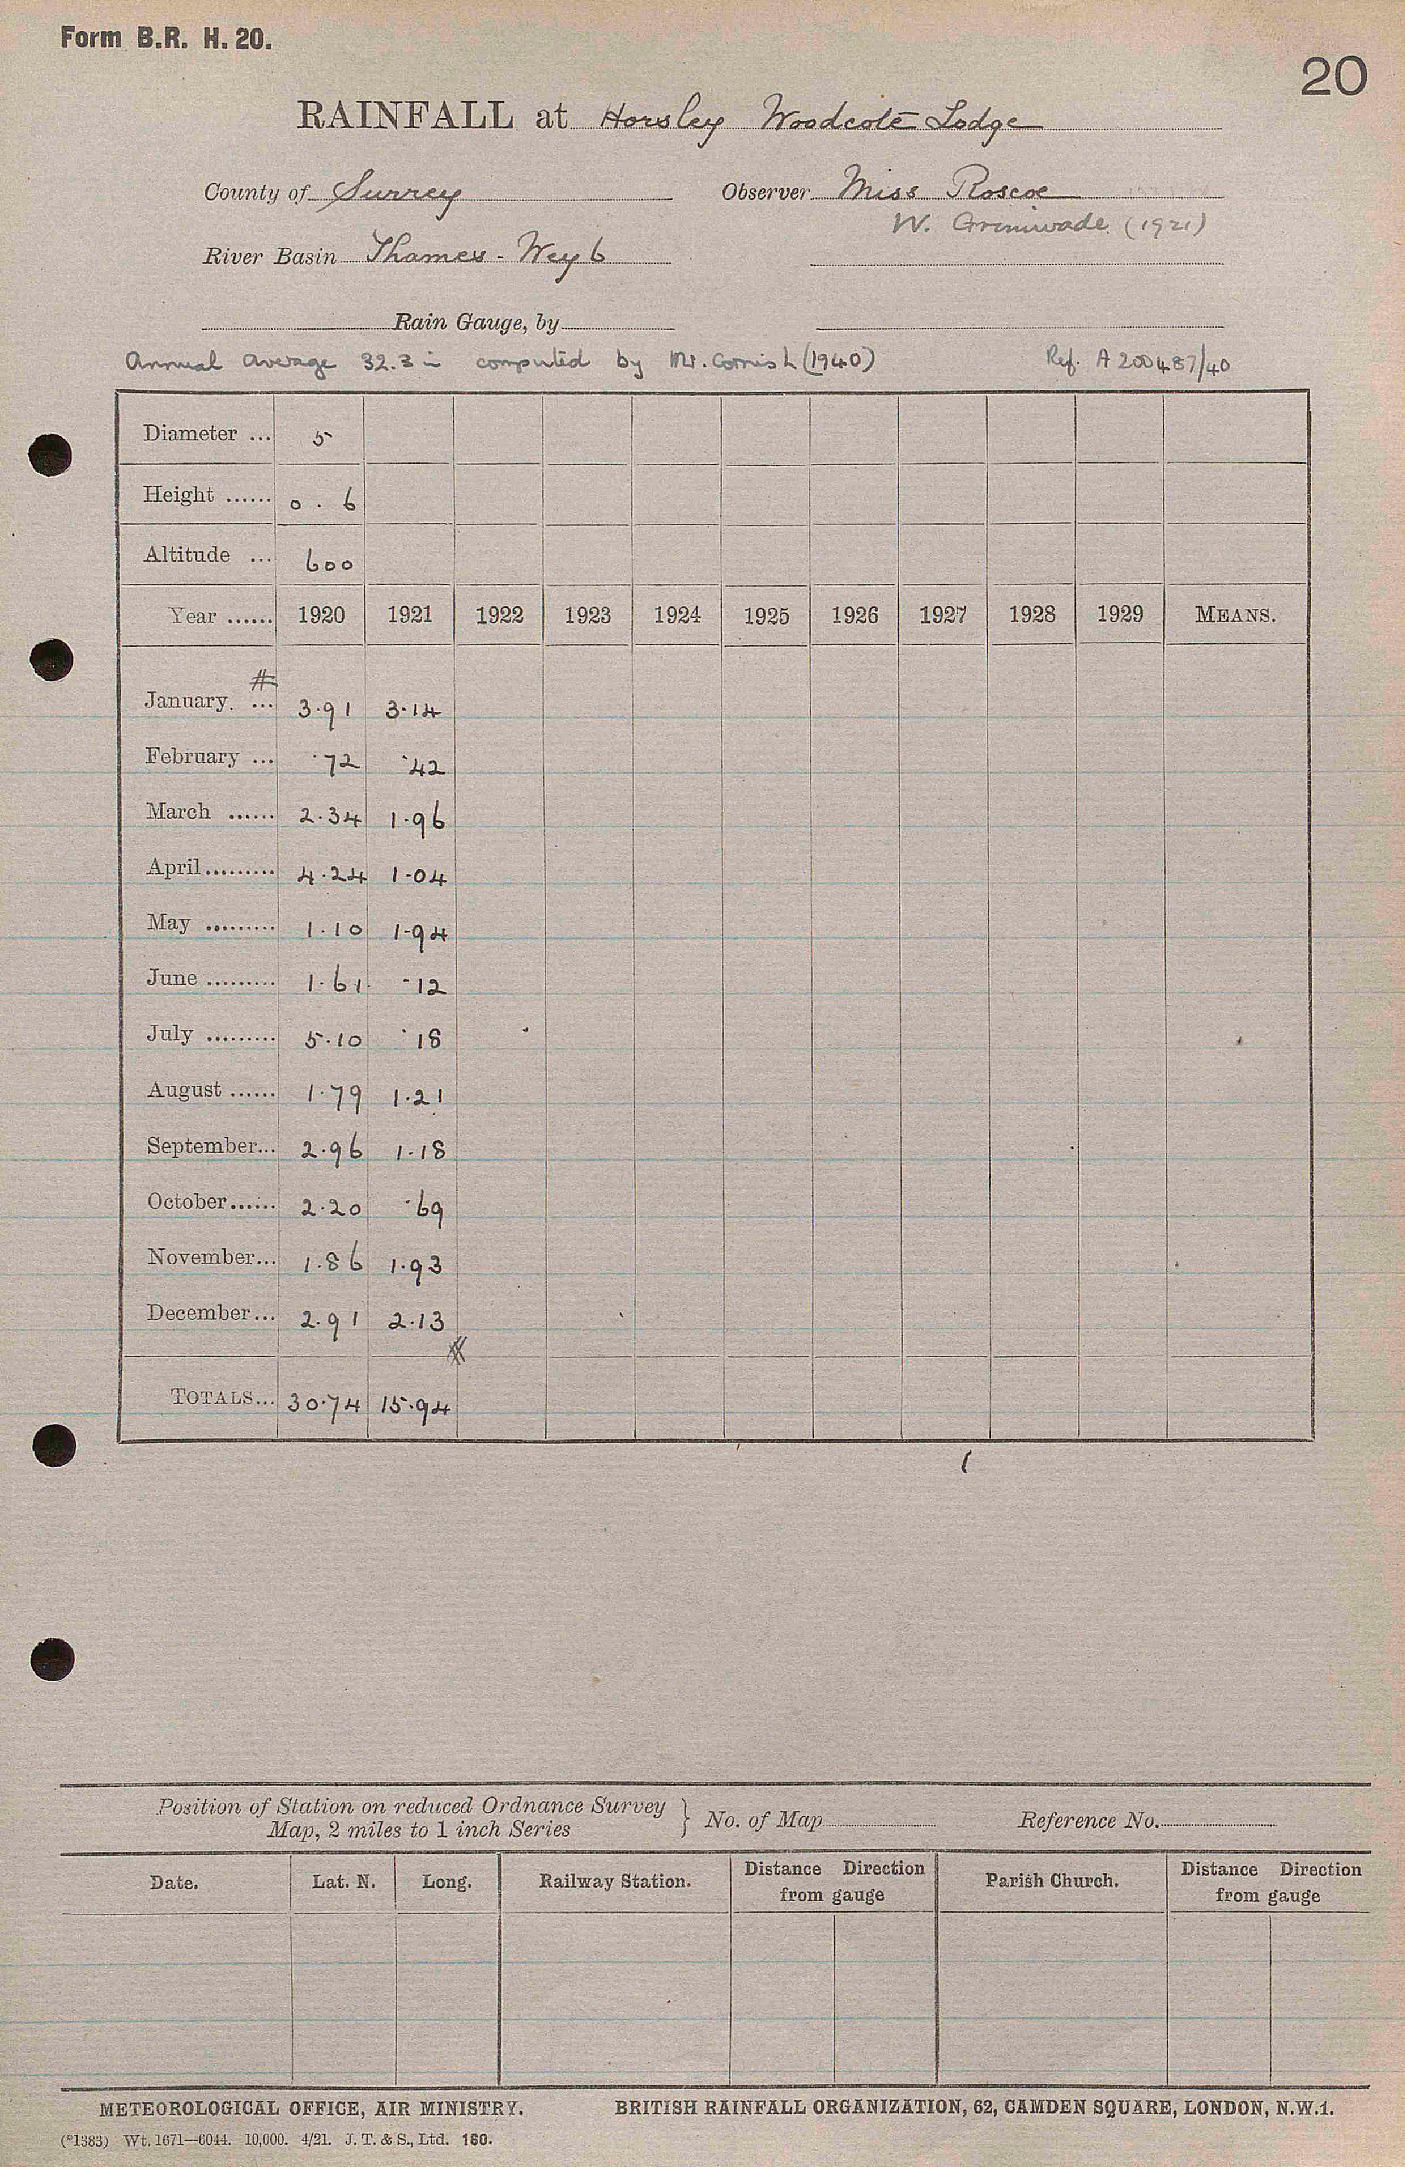 Form B.R. H. 20.
20
RAINFALL at Horsley Woodcote Lodge
County of Surrey Observer Miss Roscoe
W. (1921)
River Basin Thames - Wey 6
Rain Gauge, by
Annual average 32.3 in computed by Mr. Cornish (1940) Ref. A 200487/40
Diameter ... 5
Height ...... 0 . 6
Altitude ... 600
Year ...... 1920 1921 1922 1923 1924 1925 1926 1927 1928 1929 MEANS.
#
January. ... 3.91 3.14
February ... .72 .42
March ...... 2.34 1.96
April......... 4.24 1.04
May ......... 1.10 1.94
June ......... 1.61 .12
July ......... 5.10 .18
August ...... 1.79 1.21
September... 2.96 1.18
October...... 2.20 .69
November... 1.86 1.93
December... 2.91 2.13
TOTALS... 30.74 15.94
Position of Station on reduced Ordnance Survey
Map, 2 miles to 1 inch Series } No. of Map Reference No.
Date. Lat. N. Long. Railway Station. Distance Direction from gauge Parish Church. Distance Direction from gauge
METEOROLOGICAL OFFICE, AIR MINISTRY. BRITISH RAINFALL ORGANIZATION, 62, CAMDEN SQUARE, LONDON, N.W.1.
(*1383) Wt. 1671—6044. 10,000. 4/21. J. T. & S., Ltd. 180.